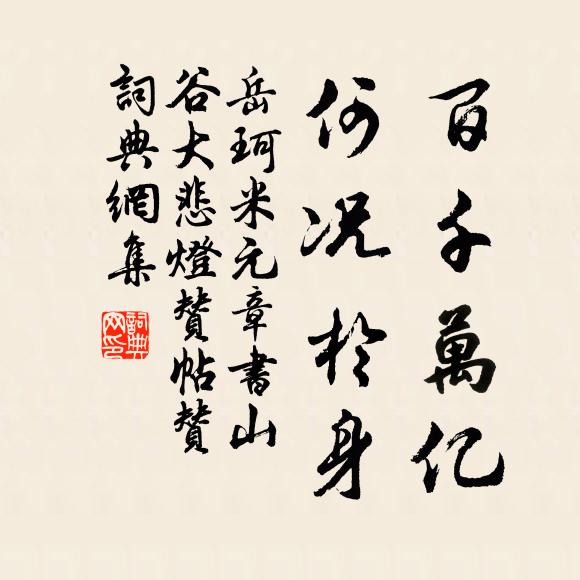 百千萬亿
何况於身
岳珂米元章書山
谷大悲燈贊帖贊
詞典網集
詞典
网印